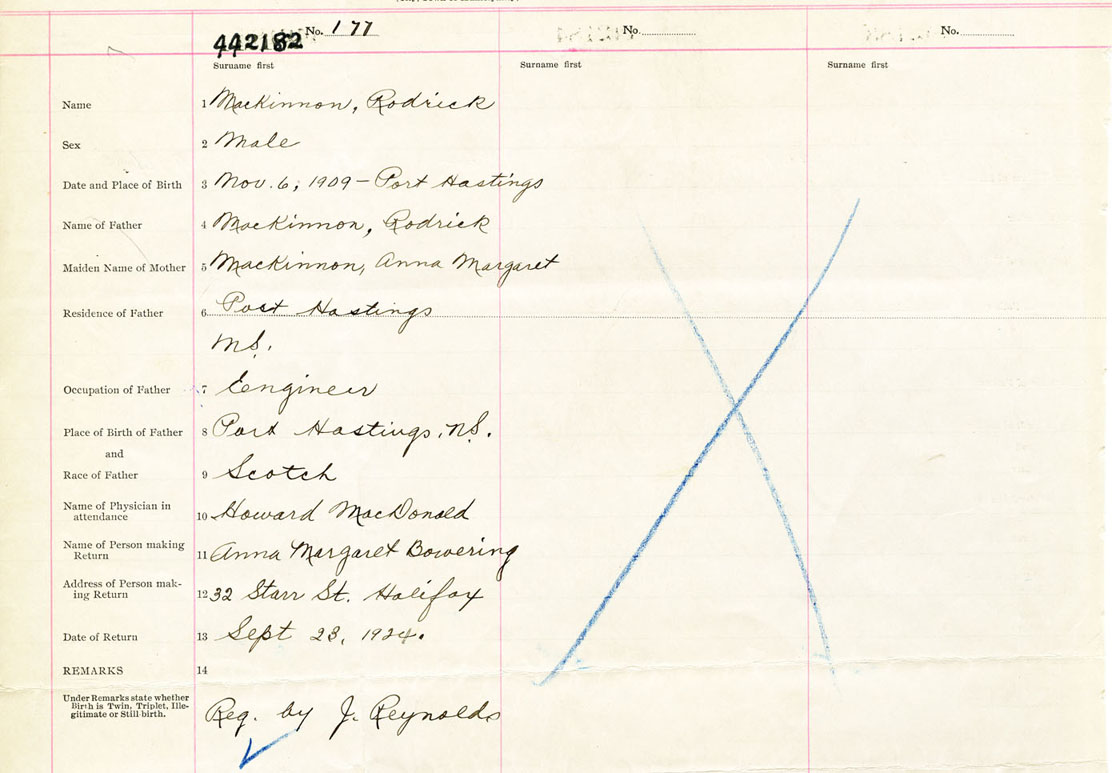 442182 No. 177 No. No.
Surname first Surname first Surname first
Name 1 Mackinnon, Rodrick
Sex 2 Male
Date and Place of Birth 3 Nov. 6, 1909 - Port Hastings
Name of Father 4 Mackinnon, Rodrick
Maiden Name of Mother 5 Mackinnon, Anna Margaret
Residence of Father 6 Port Hastings
N.S.
Occupation of Father 7 Engineer
Place of Birth of Father 8 Port Hastings, N.S.
and
Race of Father 9 Scotch
Name of Physician in
attendance 10 Howard MacDonald
Name of Person making
Return 11 Anna Margaret Bowering
Address of Person mak-
ing Return 12 32 Starr St. Halifax
Date of Return 13 Sept 23, 1924.
REMARKS 14
Under Remarks state whether
Birth is Twin, Triplet, Ille-
gitimate or Still-birth.
Reg. by J. Reynolds